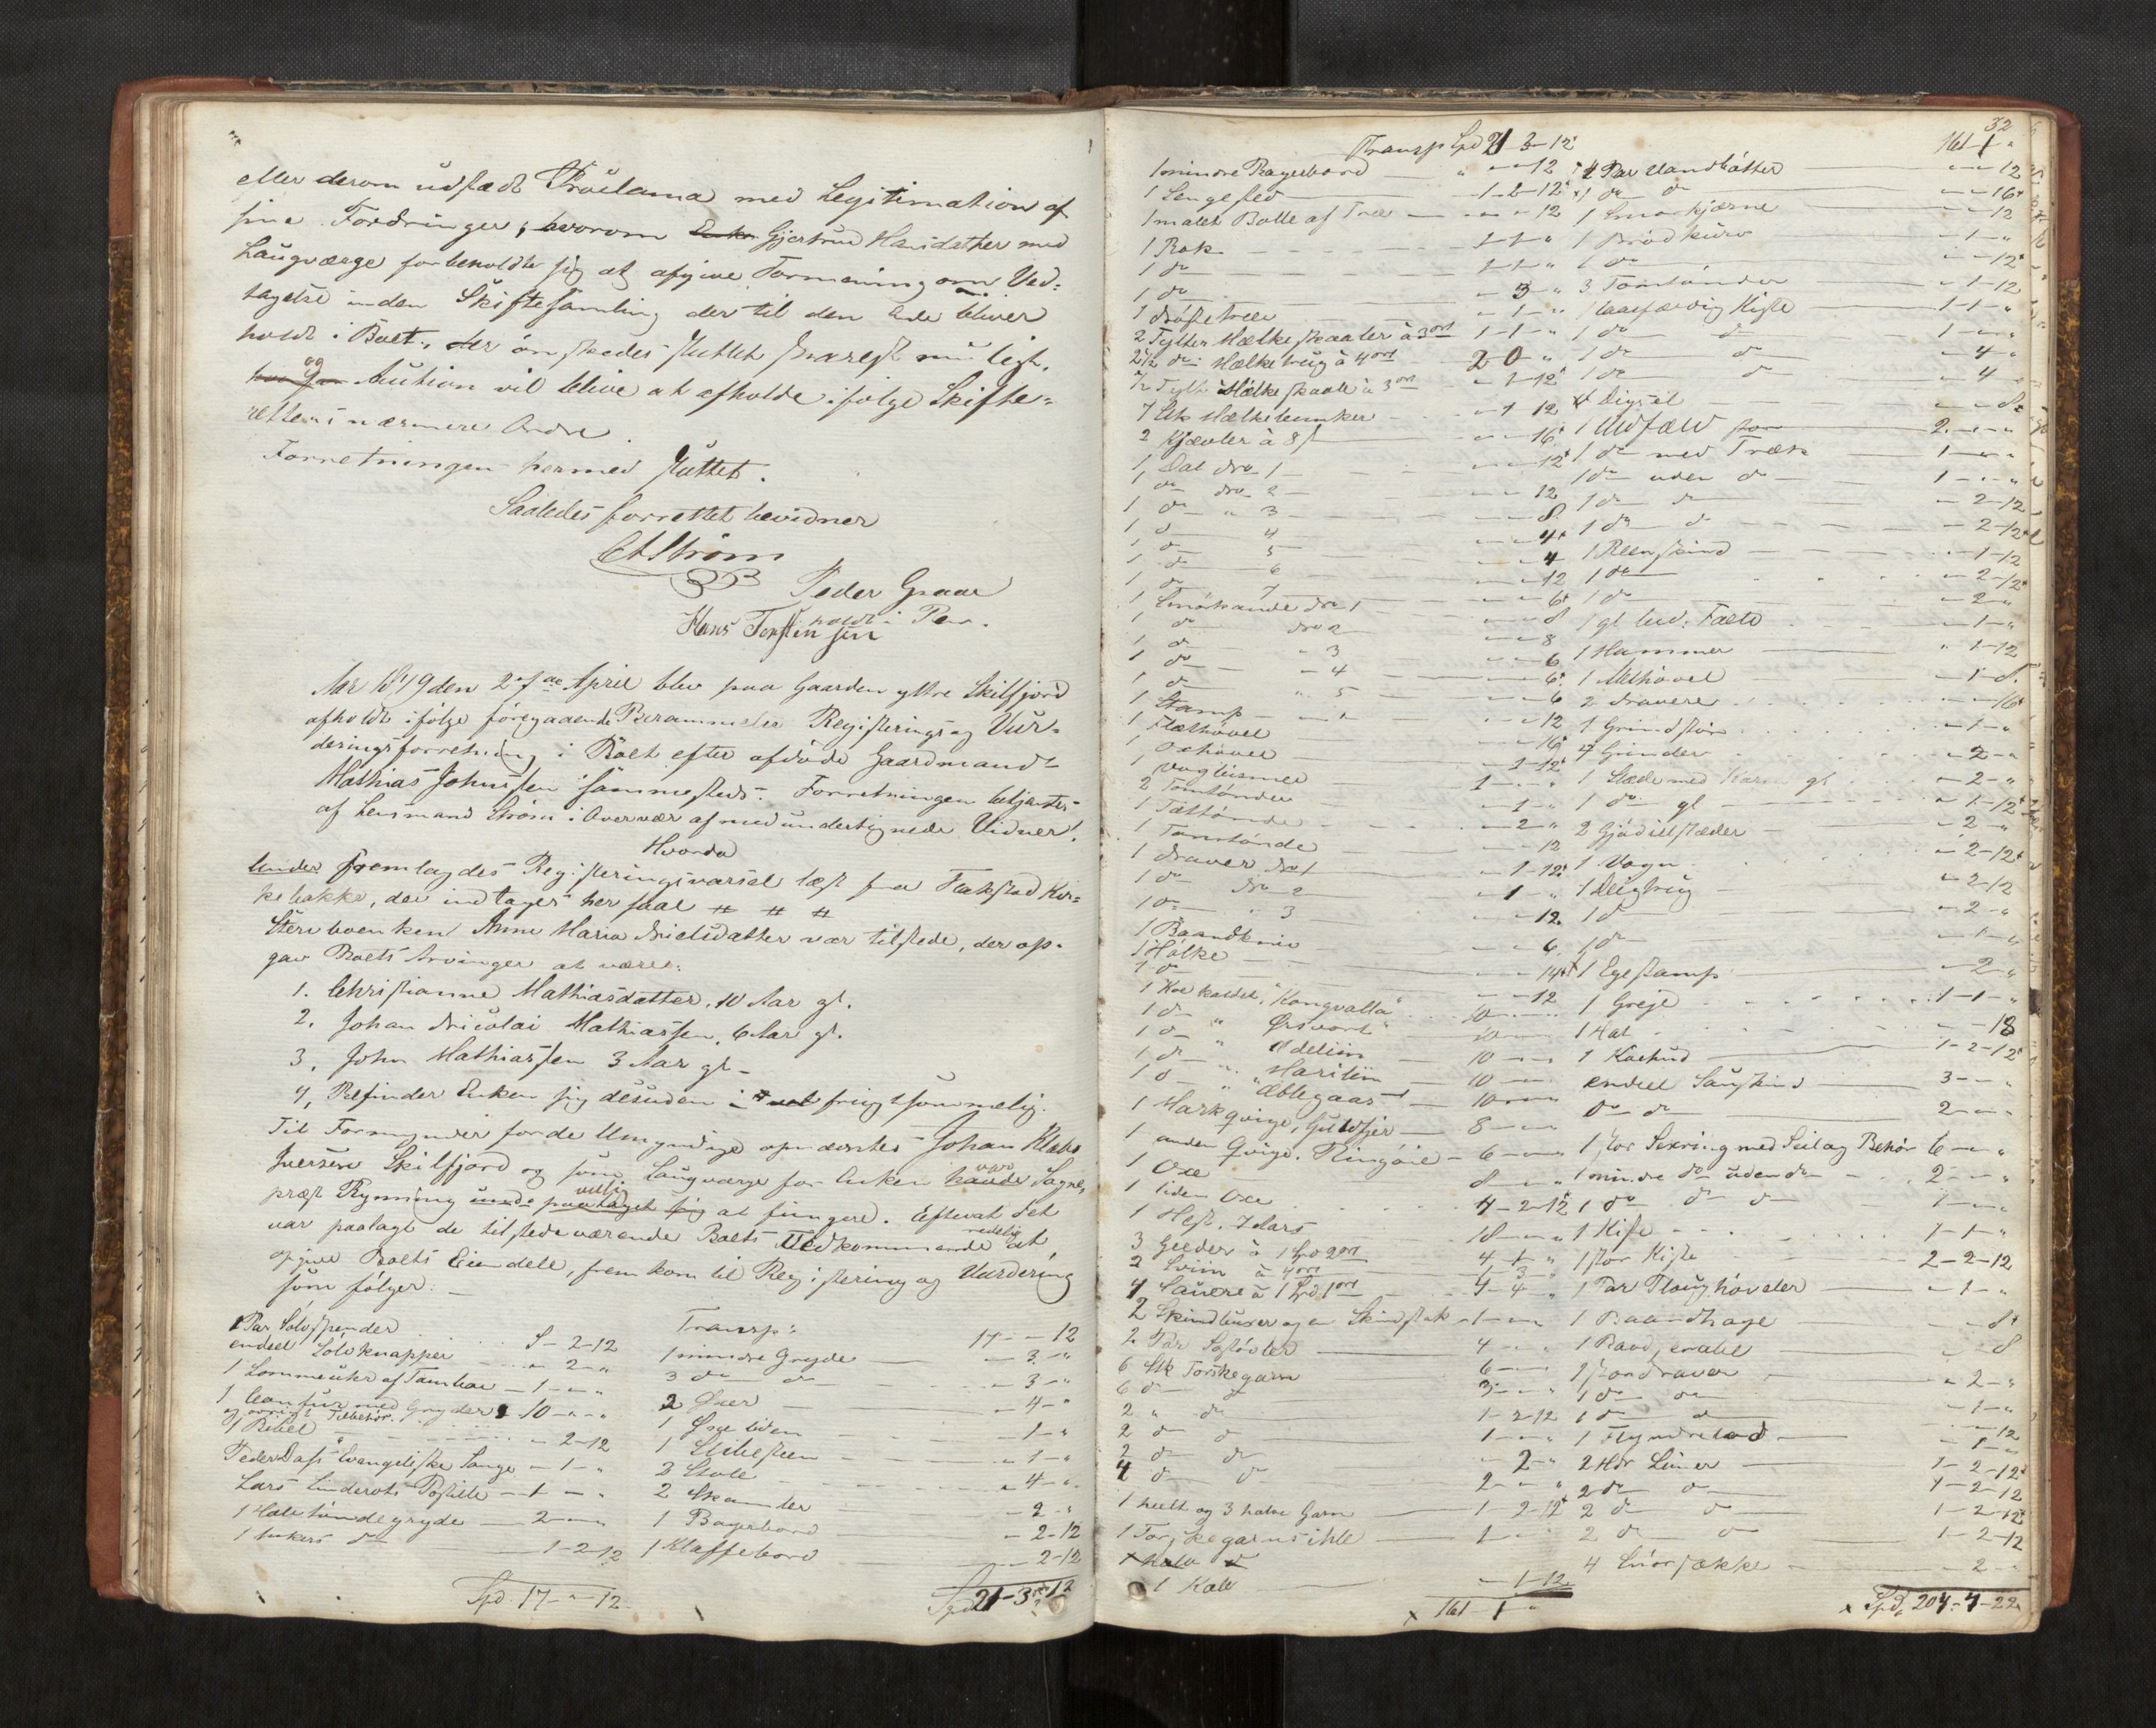 eller derom udstædt Proclama med Legitimation af
sine Fordringer; hvorom Gjertrud Hansdatter med
Laugværge forbeholdte sig at afgive Formening om Ved-
tagelse inden Skiftesamling der til den Ende bliver
holdt i Boet, der ønskedes sluttet snarest muligt,
og Auction vil blive at afholde ifølge Skifte-
rettens nærmere Ordre.
Forretningen hermed sluttet.
Saaledes forrettet bevidner
Strøm
Peder Graae
Hans Torstensen
holdt i Pen.
Aar 1849 den 27de April blev paa Gaarden yttre Skilfjord
afholdt ifølge foregaaende Berammelse Registerings og Vur-
deringsforretning i Boet efter afdøde Gaardmand
Mathias Johnsen sammesteds. Forretningen betjentes
af Lensmand Strøm i Overvær af medundertegnede Vidner.
Hvorda
fremlagdes Registeringsvarsel læst fra Flakstad Kir-
kebakke, der indtages her saal # # #
Stervboenken Anne Maria Nielsdatter var tilstede, der op-
gav Boets Arvinger at være:
1. Christianne Mathiasdatter, 10 Aar gl.
2. Johan Nicolai Mathiassen, 6 Aar gl.
3. John Mathiassen 3 Aar gl.
4, Befinder Enken sig desuden frugtsommelig.
Til Formynder for de Umyndige opnævntes Johan Klebo
Iversen Skilfjord og som Laugværge for Enken var Sogne-
præst Rynning villig at fungere. Efterat det
var paalagt de tilstedeværende Boets Vedkommende redelig at
opgive Boets Eiendele, fremkom til Registering og Vurdering
som følger:
1 Par Sølvspender 〃 - 2-12
endeel Sølvknapper 〃 - 2 - 〃
1 Lommeuhr af Tombac - 1 - 〃 - 〃
1 Comfur med Gryder 10 - 〃 - 〃
og øvrigt Tilbehør
1 Bibel - 2-12
Peder Dass Evangeliske Sange - 1 - 〃
Lars Linderots Postille - 1 - 〃
1 Halvtøndegryde - 2 - 〃
1 Ankers do 1-2-12
Spd. 17 - 〃 - 12
Transp: 17 - - 12
1 mindre Gryde - 3 - 〃
3 do do - 3 - 〃
2 Øxer - 4 - 〃
1 Øxe liden - 1 - 〃
1 Slibesteen - 1 - 〃
2 Stole - 4 - 〃
2 Skamler - 2 - 〃
1 Bagerbord - 2-12
1 Klaffebord - 2-12
Spd 21-3-12
32
Transp Spd 21-3-12
1 mindre Bagerbord 〃 - 〃 - 12
1 Sengested 1-2-12
1 malet Bolle af Træ - 12
1 Rok 1-1-〃
1 do 1-1-〃
1 do - 3 - 〃
2 Tylter Mælkeskaaler à 3 ort 1-1-〃
2½ do Mælketrug à 4 ort 2 0 〃
½ Tylt Mælkeskaale à 3 ort - 1-12
7 Stk Mælkebunker - 1 12
2 Kjævler à 8 s - 16
1 Dal No 1 - 12
1 do No 2 - 12
1 do 〃 3 - 8
1 do 4 - 4
1 do 5 - 4
1 do 6 - 12
1 do 7 - 6
1 Smørkande No 1 - 8
1 do No 2 - 8
1 do - 3 - 6
1 do - 4 - 6
1 do 〃 5 - 6
1 Stamp - 12
1 Slethøvel - 16
1 Oxhøvel - 1-12
2 Tomtønder - 2 - 〃
1 Tomtønde - 1-12
1 Naver No 1 - 1 - 〃
1 do No 2 - 12
1 do 〃 3 - 6
1 Baandkniv - 14
1 Holke - 12
1 Koe kaldet, "Kongvalta" 10 - 〃
1 do 〃 Ørsvort 10 - 〃
1 do 〃 Adeliin 10 - 〃
1 do 〃 Mariliin 10 - 〃
1 do 〃 Æblegaas 10 - 〃
1 Mark qvige, Guldfjer 8 - 〃
1 anden Qvige, Ringøie - 6 - 〃
1 Oxe 8 - 〃
1 liden Oxe 4-2-12
1 Hest, 7 Aars 18 - 〃
3 Geeder à 1 Spd 2 ort 4 1 〃
2 Sviin à 4 ort 1 3 〃
4 Sauer à 1 Spd 1 ort 4-4-〃
2 Skindbuxer og en Skindstak 1 - 〃
2 Par Søstøvler 4 - 〃
6 Stk Torskegarn 6 - 〃
6 do do 3 - 〃
2 〃 do 1-2-12
2 do do 1 - 〃
2 do do - 2 - 〃
4 do do 2 - 〃
1 heelt og 3 halve Garn 1-2-12
1 Torskegarnsihle 1 - 〃
1 Kalv - 1-12
x 161 - 1 - 〃
161 1 〃
2 Par Vandbøtter - 12
1 do do - 16
1 Smørkjærne - 12
1 Brødkurv - 1 - 〃
1 do - 12
3 Tomtønder - 1-12
1 laasfærdig Kiste 1-1-〃
1 do do 1 - 〃
1 do do - 4 -
1 do do - 4
1 Uldfæld stor 2 - 〃
1 do med Træk 1 - 〃
1 do uden do 1 - 〃
1 do do - 2-12
1 do do - 2-12
1 Reenskind - 1-12
1 do - 2-12
1 do - 2 - 〃
1 gl lud: Fæld - 1 - 〃
1 Hammer 〃 1-12
2 Navere - 16
1 Grindstør - 1 - 〃
4 Grinder - 2 - 〃
1 Slæde med Karm gl - 2 - 〃
1 do gl - 1-12
2 Gjødselslæder - 2 - 〃
1 Vogn - 2-12
1 Deigtrug - 2-12
1 do - 2 - 〃
1 do - 1 - 〃
1 Egestamp - 2 - 〃
1 Greje 1-1-〃
1 Hat - 18
1 Koehud 1-2-12
endeel Saugskind 3 - 〃
do do 2 - 〃
1 stor Sexring med Seil og Behør 6 - 〃
1 mindre do uden do 2 - 〃
1 do do do 1 - 〃
1 Kiste 1-1-〃
1 stor Kiste 2-2-12
1 Par Ploughøvler - 1 - 〃
1 Baandhage - 8
1 do do - 1 - 〃
1 do do - 12
1 Flyndrelod - 1 - 〃
2 Hdr Liner 1-2-12
2 do do 1-2-12
2 do do 1-2-12
2 do do 1-2-12
4 Snørstokke - 2 - 〃
x Spd. 204-4-22